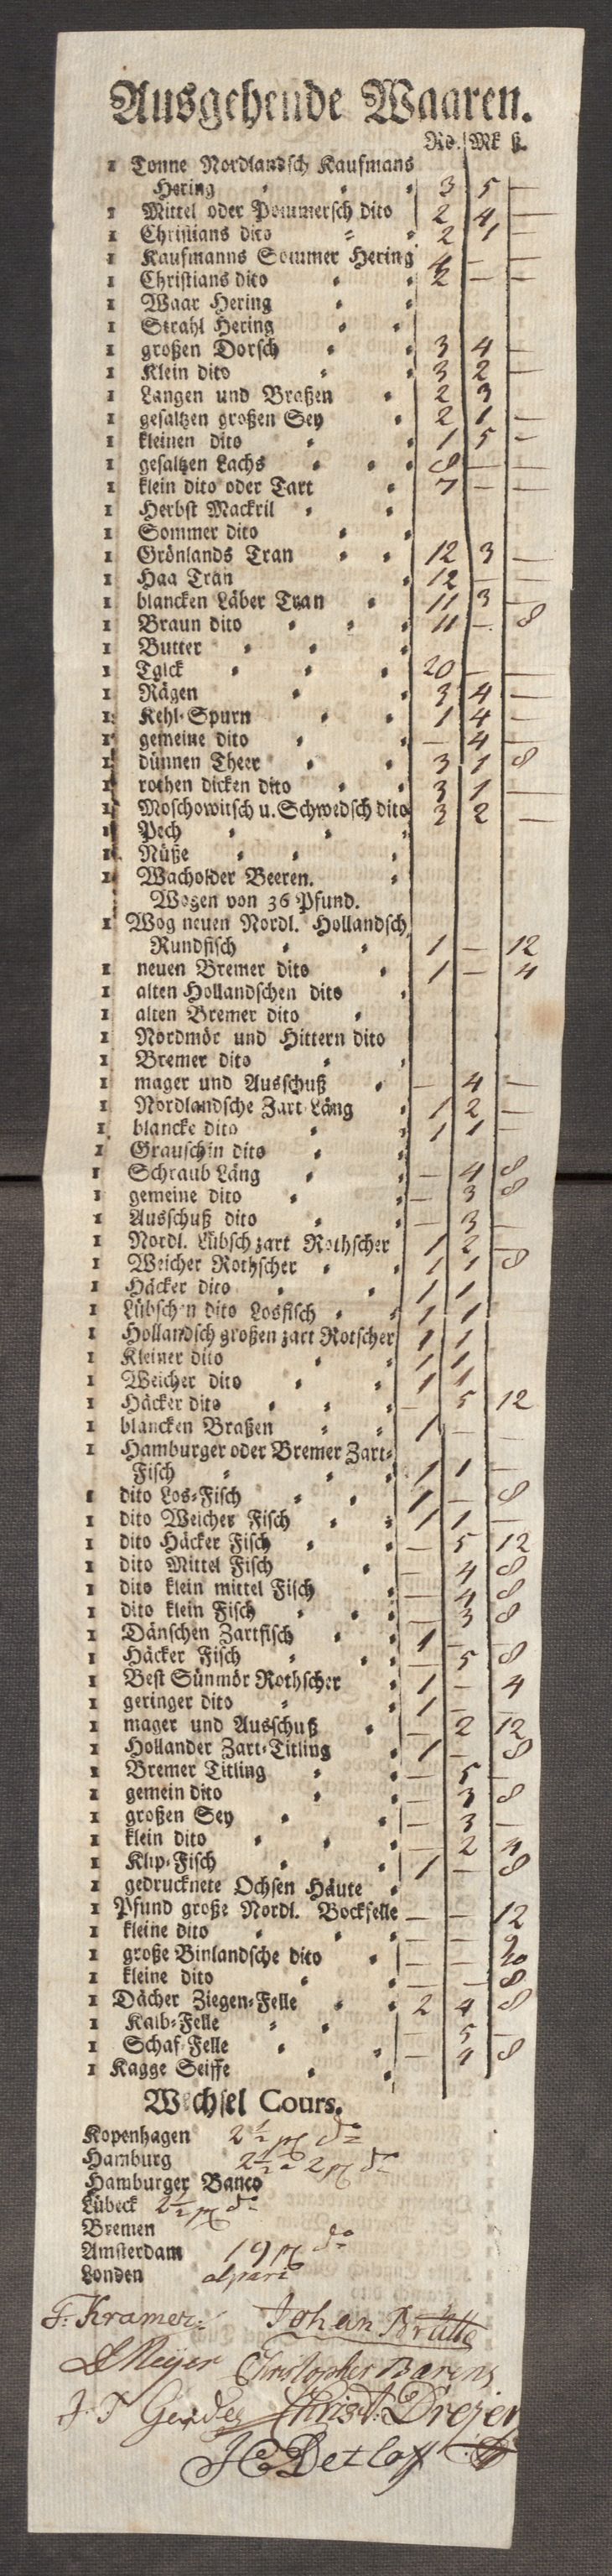 Ausgehende Waaren.
Rd. Mk ß.
1 Tonne Nordlandsch Kaufmans
Hering 3 5 —
1 Mittel oder Pommersch dito 2 4 —
1 Christians dito 2 1 —
1 Kaufmanns Sommer Hering 4 — —
1 Christians dito 2 — —
1 Waar Hering
1 Strahl Hering
1 großen Dorsch 3 4 —
1 Klein dito 3 2 —
1 Langen und Braßen 2 3
1 gesaltzen großen Sey 2 1 —
1 kleinen dito 1 5 —
1 gesaltzen Lachs 8 — —
1 klein dito oder Tart 7 — —
1 Herbst Mackril
1 Sommer dito
1 Grönlands Tran 12 3 —
1 Haa Tran 12 — —
1 blancken Läber Tran 11 3 —
1 Braun dito 11 — 8
1 Butter
1 Talck 20 — —
1 Rägen 3 4 —
1 Kehl-Spurn 1 4 —
1 gemeine dito — 4 —
1 dünnen Theer 3 1 8
1 rothen dicken dito 3 1 —
1 Moschowitsch u. Schwedsch dito 3 2 —
1 Pech
1 Nüße
1 Wacholder Beeren.
Wogen von 36 Pfund.
1 Wog neuen Nordl. Hollandsch
Rundfisch 1 — 12
1 neuen Bremer dito 1 — 4
1 alten Hollandschen dito
1 alten Bremer dito
1 Nordmör und Hittern dito
1 Bremer dito
1 mager und Ausschuß — 4 —
1 Nordlandsche Zart Läng 1 2 —
1 blancke dito 1 1 —
1 Grauschin dito
1 Schraub Läng — 4 8
1 gemeine dito — 3 8
1 Ausschuß dito — 3 —
1 Nordl. Lübsch zart Rothscher 1 2 —
1 Weicher Rothscher 1 1 8
1 Häcker dito 1 1
1 Lübschen dito Losfisch 1 1
1 Hollandsch großen zart Rotscher 1 1
1 Kleiner dito 1 1
1 Weicher dito 1 1
1 Häcker dito — 5 12
1 blancken Braßen 1 — —
1 Hamburger oder Bremer Zart-
Fisch 1 1 —
1 dito Los-Fisch 1 — 8
1 dito Weicher Fisch 1 1 —
1 dito Häcker Fisch — 5 12
1 dito Mittel Fisch — 4 8
1 dito klein mittel Fisch — 4 8
1 dito klein Fisch — 3 8
1 Dänschen Zartfisch 1 —
1 Häcker Fisch — 5 8
1 Best Sünmör Rothscher 1 — 4
1 geringer dito 1 —
1 mager und Ausschuß — 2 12
1 Hollander Zart-Titling 1 — 8
1 Bremer Titling — 5 —
1 gemein dito — 3 8
1 großen Sey — 3 —
1 klein dito — 2 4
1 Klip-Fisch 1 — 8
1 gedrucknete Ochsen Häute
1 Pfund große Nordl. Bockfelle — — 12
1 kleine dito — —
1 große Binlandsche dito — —
1 kleine dito — — 8
1 Dächer Ziegen-Felle 2 4 8
1 Kalb-Felle — 5 —
1 Schaf-Felle — 4 8
1 Kagge Seiffe
Wechsel Cours.
Kopenhagen 2½ p do
Hamburg 2½ a 2 p do
Hamburger Banco
Lübeck 2½ p do
Bremen
Amsterdam 19 p do
Londen alpari
F. Kramer. Johan Brütte
Meyer Christopher Barens
J. F Gerdes Christ. Drejer
J C Detloff